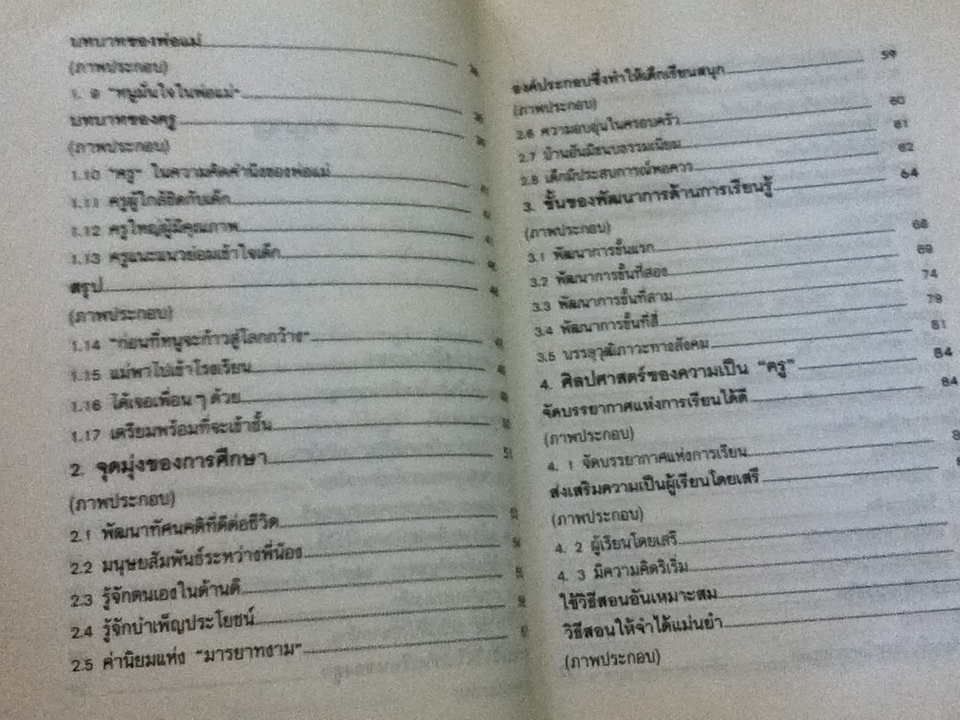 บทบาทของพ่อแม่
(ภาพประกอบ)
1. ๑ "หนูมั่นใจในพ่อแม่"
บทบาทของครู
(ภาพประกอบ)
1.10 "ครู" ในความคิดคำนึงของพ่อแม่
1.11 ครูผู้ใกล้ชิดกับเด็ก
1.12 ครูใหญ่ผู้มีคุณภาพ
1.13 ครูแนะแนวย่อมเข้าใจเด็ก
สรุป
(ภาพประกอบ)
1.14 "ก่อนที่หนูจะก้าวสู่โลกกว้าง"
1.15 แม่พาไปเข้าโรงเรียน
1.16 ได้เจอเพื่อน ๆ ด้วย
1.17 เตรียมพร้อมที่จะเข้าชั้น
2. จุดมุ่งของการศึกษา 51
(ภาพประกอบ)
2.1 พัฒนาทัศนคติที่ดีต่อชีวิต
2.2 มนุษยสัมพันธ์ระหว่างพี่น้อง
2.3 รู้จักตนเองในด้านดี
2.4 รู้จักบำเพ็ญประโยชน์
2.5 ค่านิยมแห่ง "มารยาทงาม"
องค์ประกอบซึ่งทำให้เด็กเรียนสนุก 59
(ภาพประกอบ)
2.6 ความอบอุ่นในครอบครัว 60
2.7 บ้านอันมีขนบธรรมเนียม 61
2.8 เด็กมีประสบการณ์พอควร 62
3. ขั้นของพัฒนาการด้านการเรียนรู้ 64
(ภาพประกอบ)
3.1 พัฒนาการขั้นแรก 68
3.2 พัฒนาการขั้นที่สอง 69
3.3 พัฒนาการขั้นที่สาม 74
3.4 พัฒนาการขั้นที่สี่ 79
3.5 บรรลุวุฒิภาวะทางสังคม 81
4. ศิลปศาสตร์ของความเป็น "ครู" 84
จัดบรรยากาศแห่งการเรียนได้ดี 84
(ภาพประกอบ)
4. 1 จัดบรรยากาศแห่งการเรียน
ส่งเสริมความเป็นผู้เรียนโดยเสรี
(ภาพประกอบ)
4. 2 ผู้เรียนโดยเสรี
4. 3 มีความคิดริเริ่ม
ใช้วิธีสอนอันเหมาะสม
วิธีสอนให้จำได้แม่นยำ
(ภาพประกอบ)